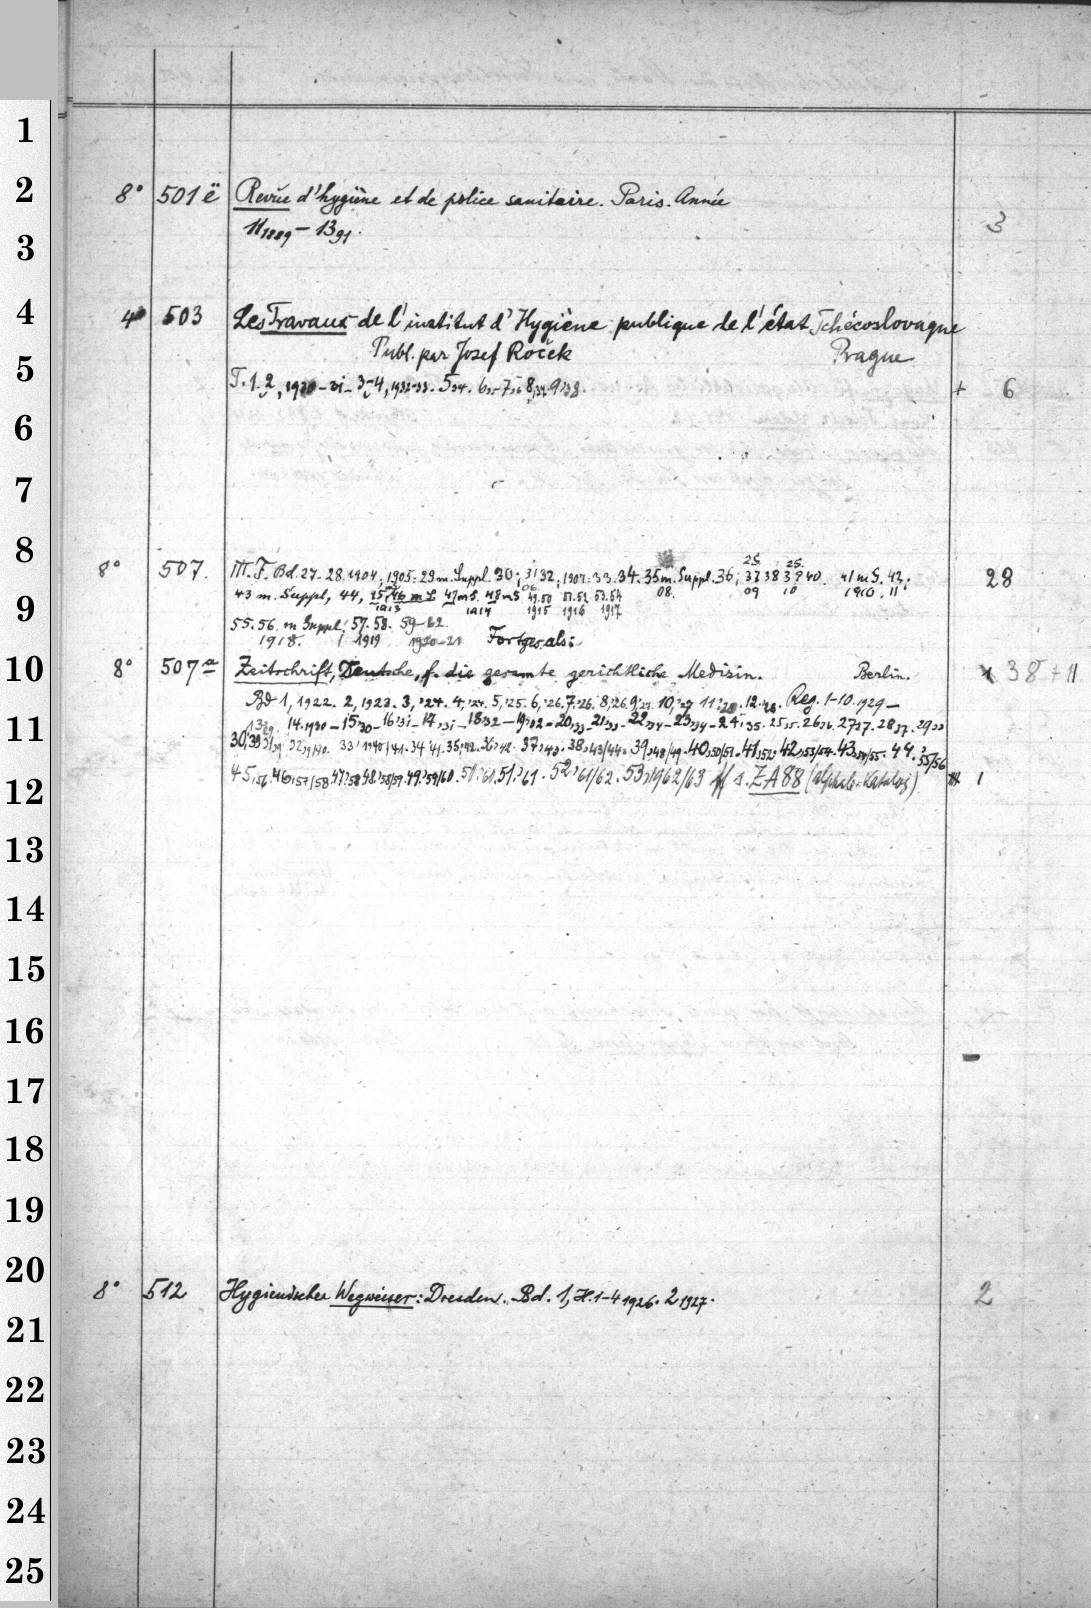 1
2
8° 501ë Revue d'hygiène et de police sanitaire. Paris. Année
11 1889 – 13 91. 3
3
4
4° 503 Les Travaux de l'institut d'Hygiène publique de l'état Tchécoslovaque
Publ. par Josef Roček Prague
5
T. 1-2, 1920-31- 3-4, 1932-33. 5 34. 6 35- 7 36 8, 37. 9 38. + 6
6
7
8
8° 507. III. F. Bd. 27-28. 1904, 1905: 29 m. Suppl. 30; 31 32, 1907: 33. 34. 35 m. Suppl. 36; 37 38 39 40. 41 m S. 42; 28
06 08. 09 10 1910. 11
9
43 m. Suppl, 44, 45, 46 m S 47 m S. 48 m S 49. 50 51. 52 53. 54
1913 1914 1915 1916 1917
55. 56. m Suppl, 57. 58. 59-62
1918. 1919 1920-21 Fortges. als:
10
8° 507a Zeitschrift, Deutsche, f. die gesamte gerichtliche Medizin. Berlin. x 38 + 11
Bd 1, 1922. 2, 1923. 3, '24. 4, '24. 5, '25. 6, '26. 7, '26. 8, '26. 9, '27. 10, '27 11, '28. 12, '28. Reg. 1-10. 1929 –
11
13 29. 14. 1930 – 15 30 – 16 31 – 17 31 – 18 32 – 19 32 – 20, 33 – 21, 33 – 22, 34 – 23, 34 – 24, 35. 25 35. 26 36. 27 37. 28 37. 29 38
30, 39 31 39 32 39/40. 33, 1940/41. 34, 41. 35, 42. 36, 42. 37, 43. 38, 43/44. 39, 48/49. 40, 50/51. 41, 52. 42, 53/54. 43, 54/55. 44. 55/56
12
45, 56. 46, 57/58 47, 58 48, 58/59. 49, 59/60. 51, 61. 52, 61/62. 53, 1962/63 ff s. ZA 88 (alphab. Katalog) 1
13
14
15
16
17
18
19
20
8° 512 Hygienischer Wegweiser: Dresden. Bd. 1, H. 1-4 1926. 2 1927. 2
21
22
23
24
25